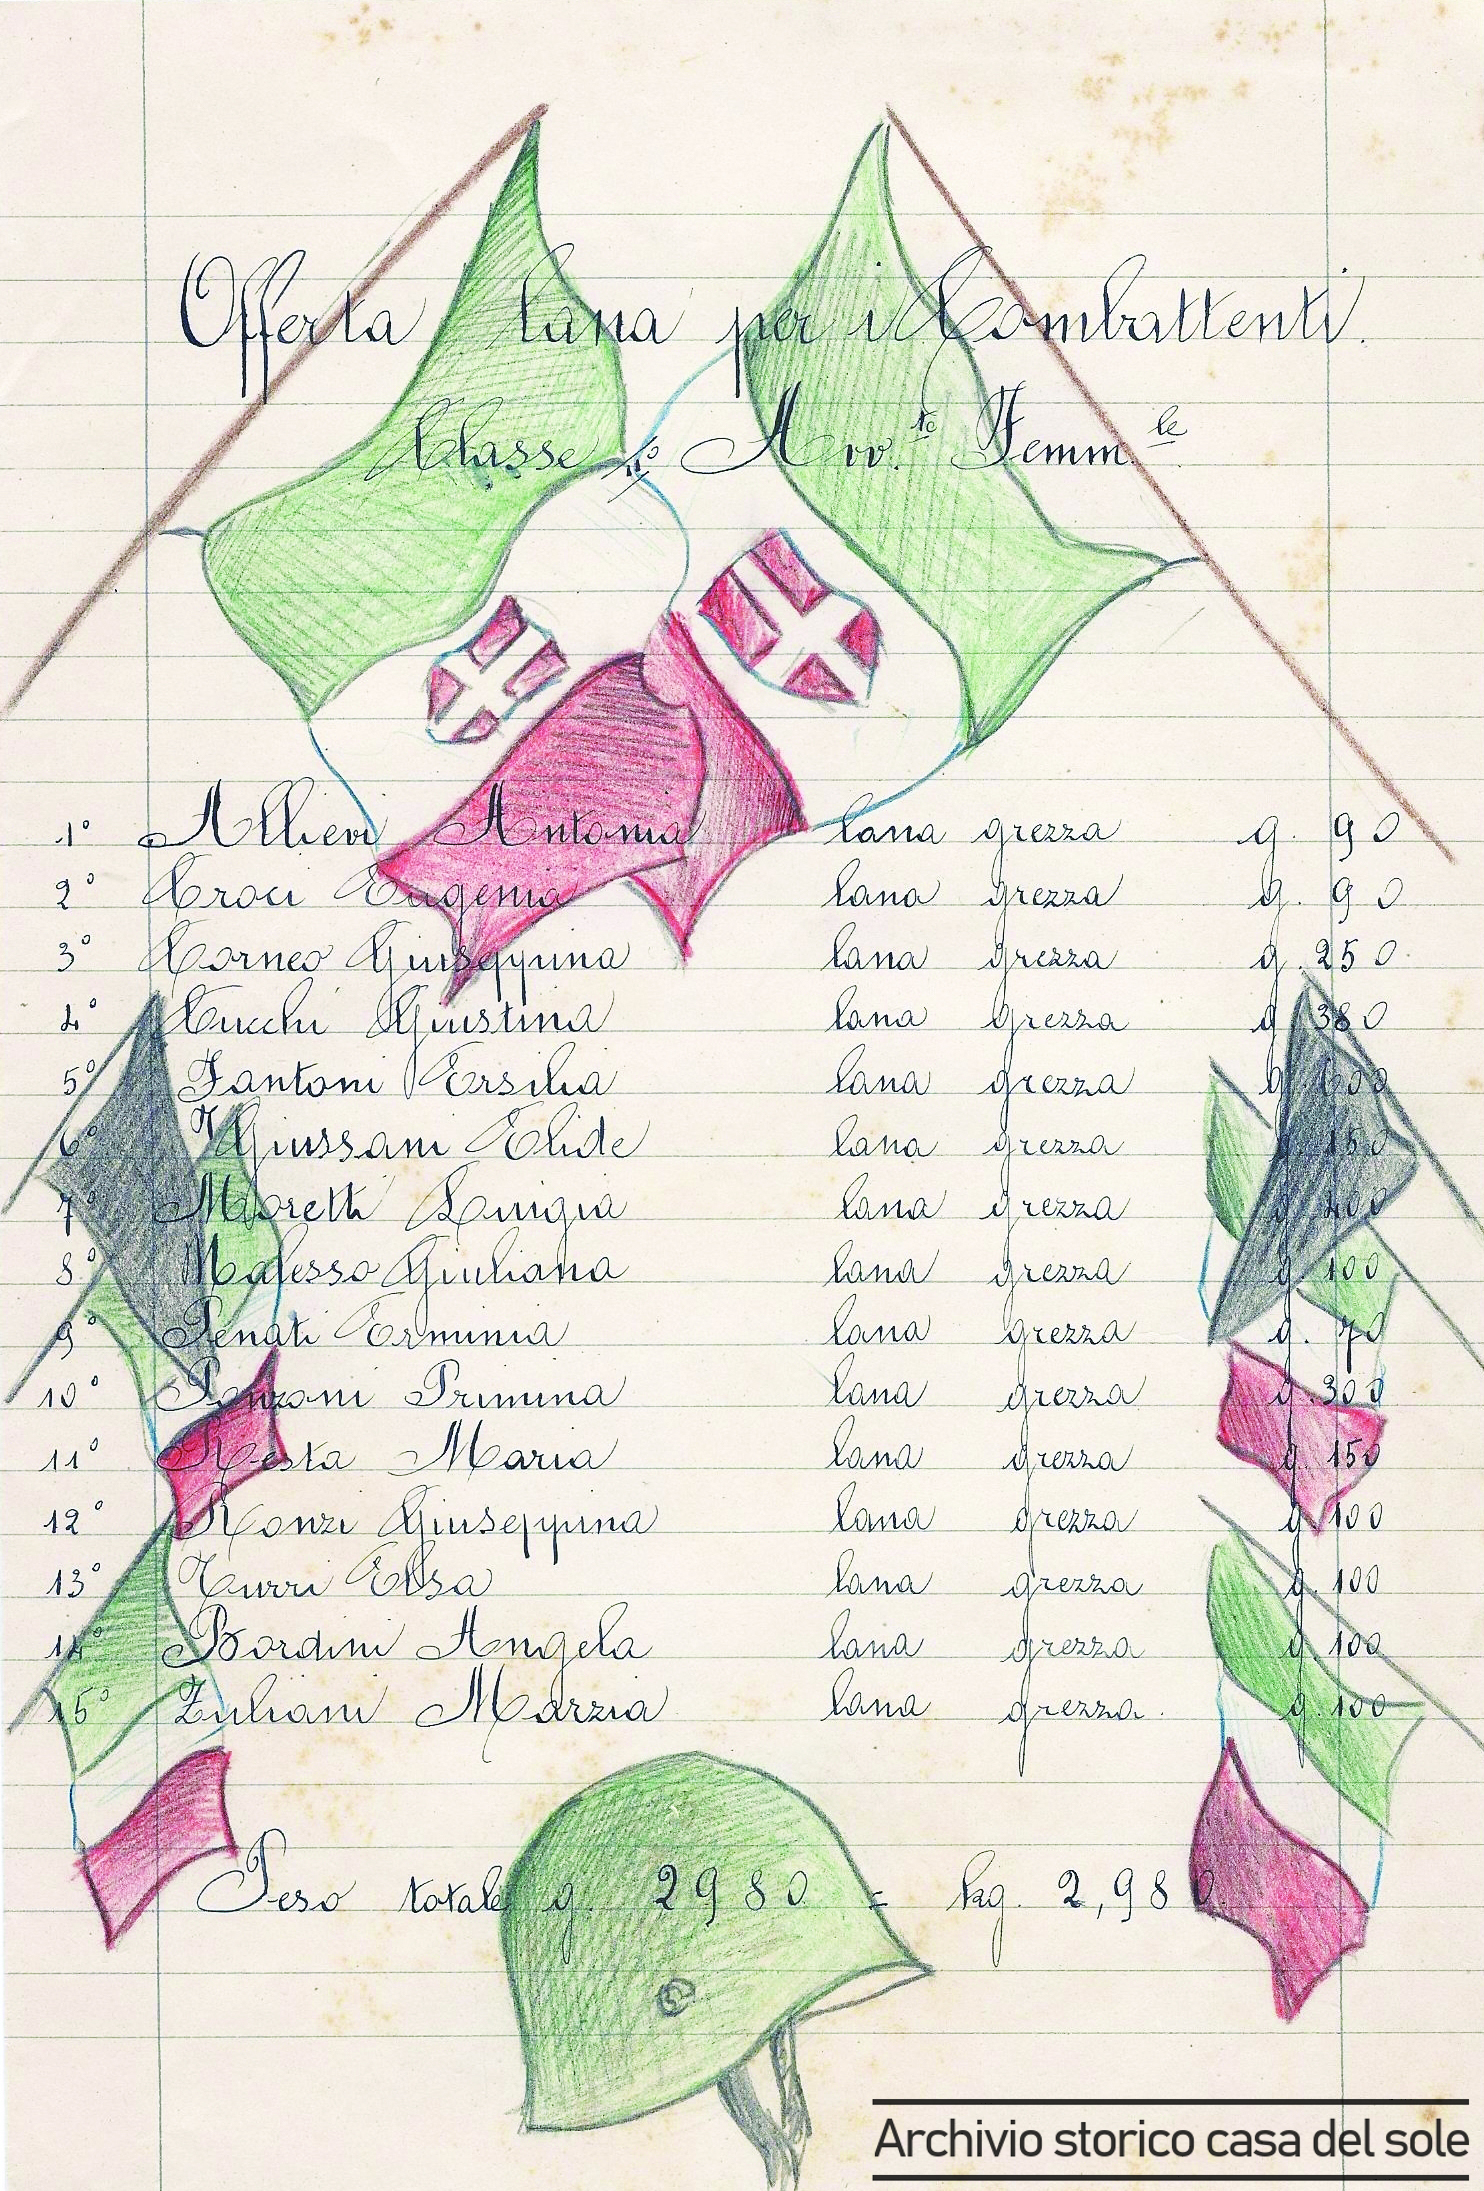 Offerta lana per i Combattenti.
Classe Avv.to Femm.le
1° Allievi Antonia lana grezza g. 90
2° Croci Eugenia lana grezza g. 90
3° Corneo Giuseppina lana grezza g. 250
4° Cucchi Giustina lana grezza g. 380
5° Fantoni Ersilia lana grezza g. 600
6° Giussani Elide lana grezza g. 150
7° Moretti Luigia lana grezza g. 400
8° Malesso Giuliana lana grezza g. 100
9° Penati Erminia lana grezza g. 70
10° Ponzoni Primina lana grezza g. 300
11° Resta Maria lana grezza g. 150
12° Ronzi Giuseppina lana grezza g. 100
13° Turri Elsa lana grezza g. 100
14° Bordini Angela lana grezza g. 100
15° Zuliani Marzia lana grezza. g. 100
Peso totale g. 2980 = kg. 2,980.
Archivio storico casa del sole